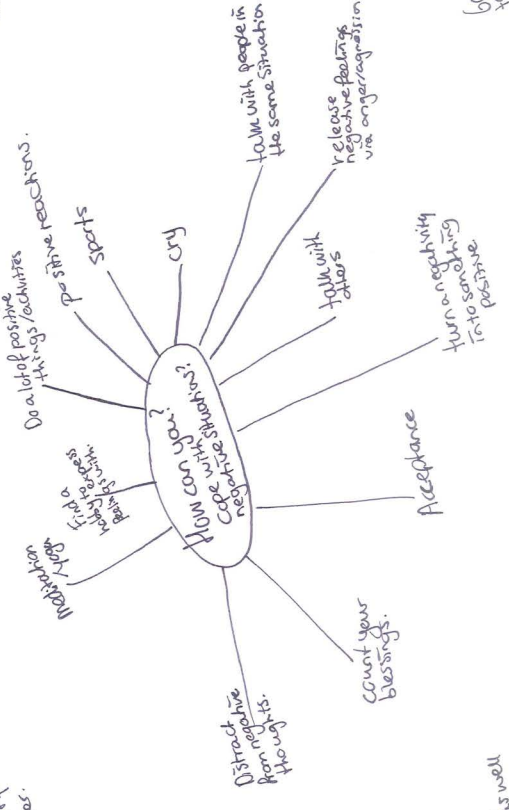 How can you?
cope with
negative situations?
Meditation
/yoga
Find a
hobby to express
feelings with.
Do a lot of positive
things/activities
positive reactions.
sports
cry
talk with people in
the same situation
release
negative feelings
via anger/agression
talk with
others
turn a negativity
into something
positive
Acceptance
count your
blessings.
Distract
from negative
thoughts.
as well